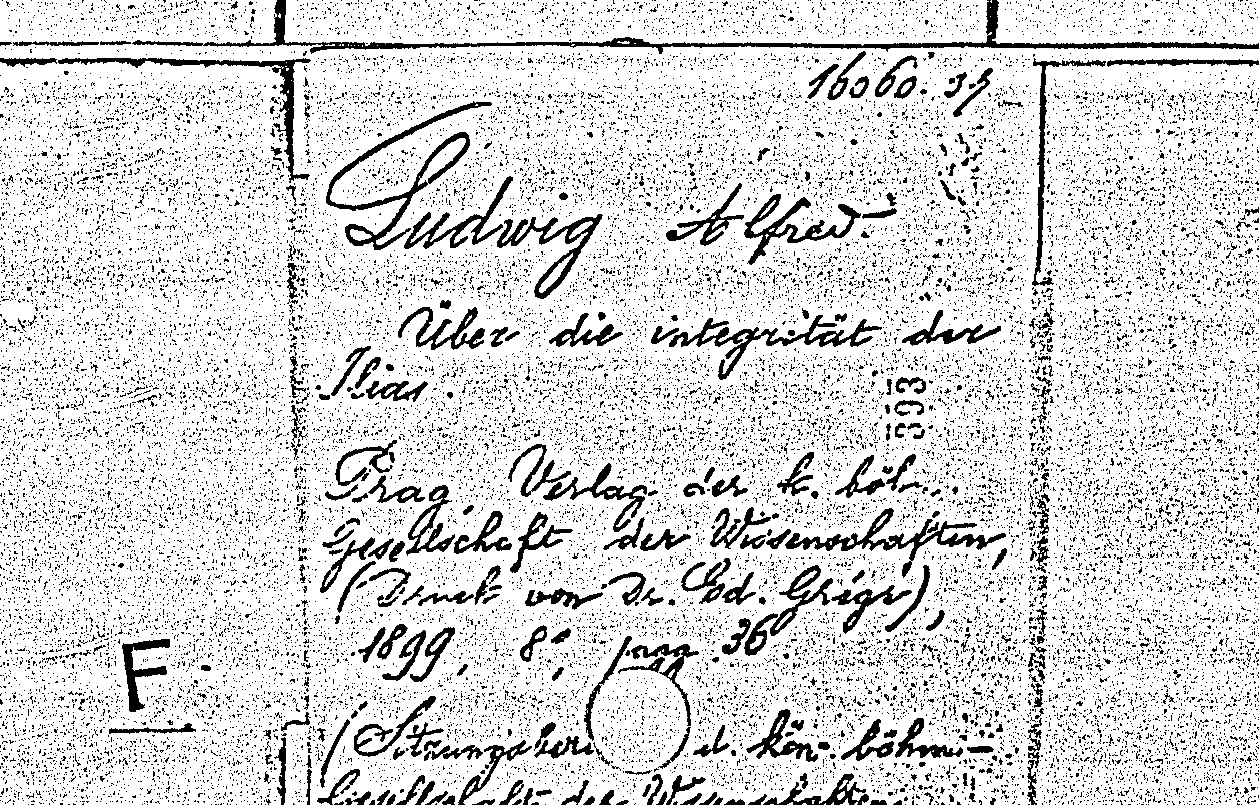 16060. 37
Ludwig Alfred.
Über die integrität der
Ilias.
393
Prag Verlag der k. böh...
Gesellschaft der Wissenschaften,
(Druck von Dr. Ed. Grégr),
1899, 8°, pag. 36.
F.
(Sitzungsberi d. kön. böhm.
Gesellschaft der Wissenschaften